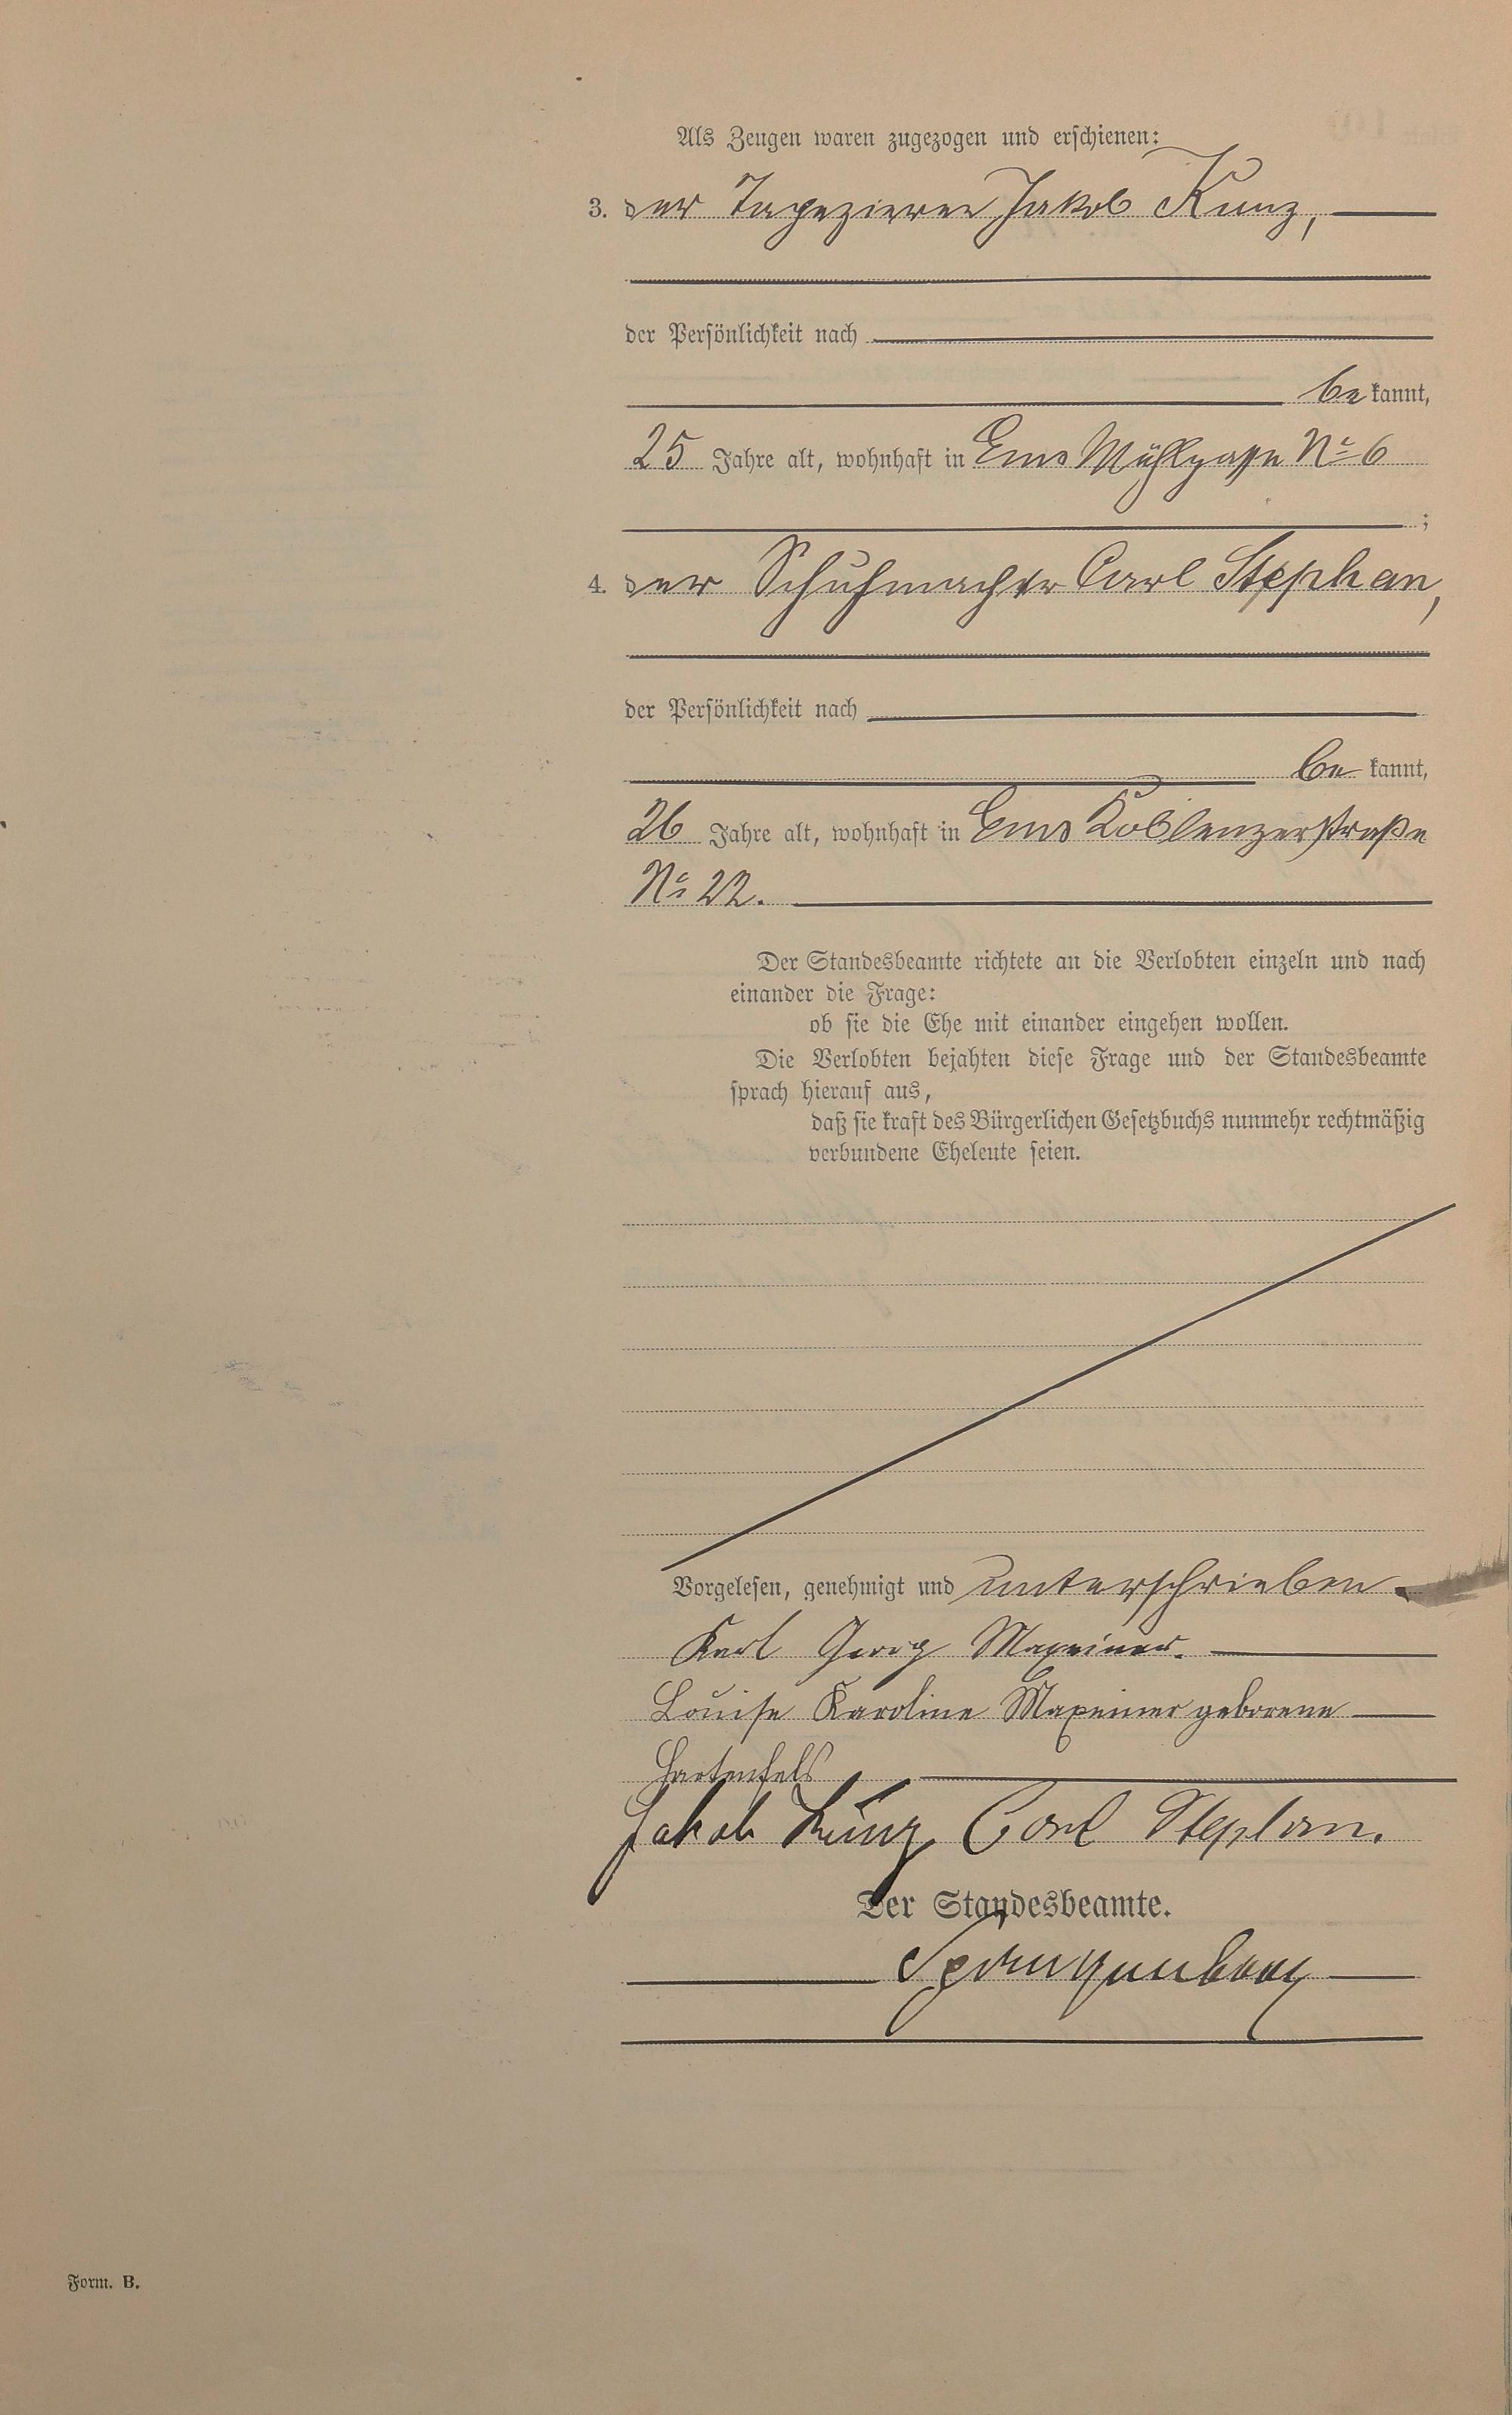 Als Zeugen waren zugezogen und erschienen:
3. der Tapezierer Jakob Kunz,
der Persönlichkeit nach
be kannt,
25 Jahre alt, wohnhaft in Ems Mühlgasse No 6
;
4. der Schuhmacher Carl Stephan,
der Persönlichkeit nach
be kannt,
26 Jahre alt, wohnhaft in Ems Koblenzerstraße
No 22.
Der Standesbeamte richtete an die Verlobten einzeln und nach
einander die Frage:
ob sie die Ehe mit einander eingehen wollen.
Die Verlobten bejahten diese Frage und der Standesbeamte
sprach hierauf aus,
daß sie kraft des Bürgerlichen Gesetzbuchs nunmehr rechtmäßig
verbundene Eheleute seien.
Vorgelesen, genehmigt und unterschrieben.
Karl Georg Maxeiner.
Louise Karoline Maxeiner geborene
Hartenfels
Jakob Kunz Carl Stephan.
Der Standesbeamte.
Form. B.